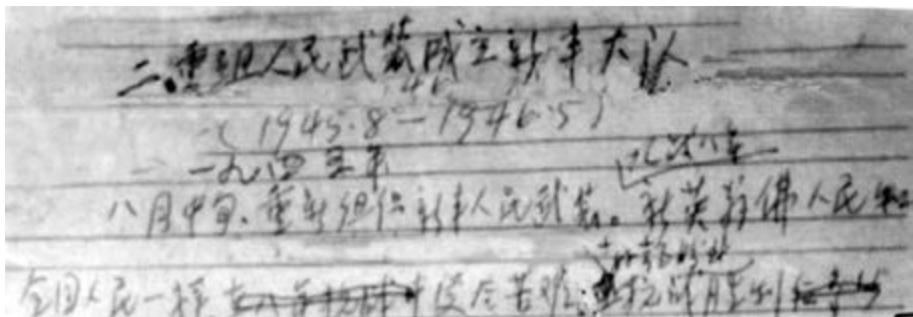 二、重组人民武装成立新丰大队
(1945.8—1946.5)
一九四五年
八月中旬、重新组织新丰人民武装。新英翁佛人民和
全国人民一样 受尽苦难 抗战胜利